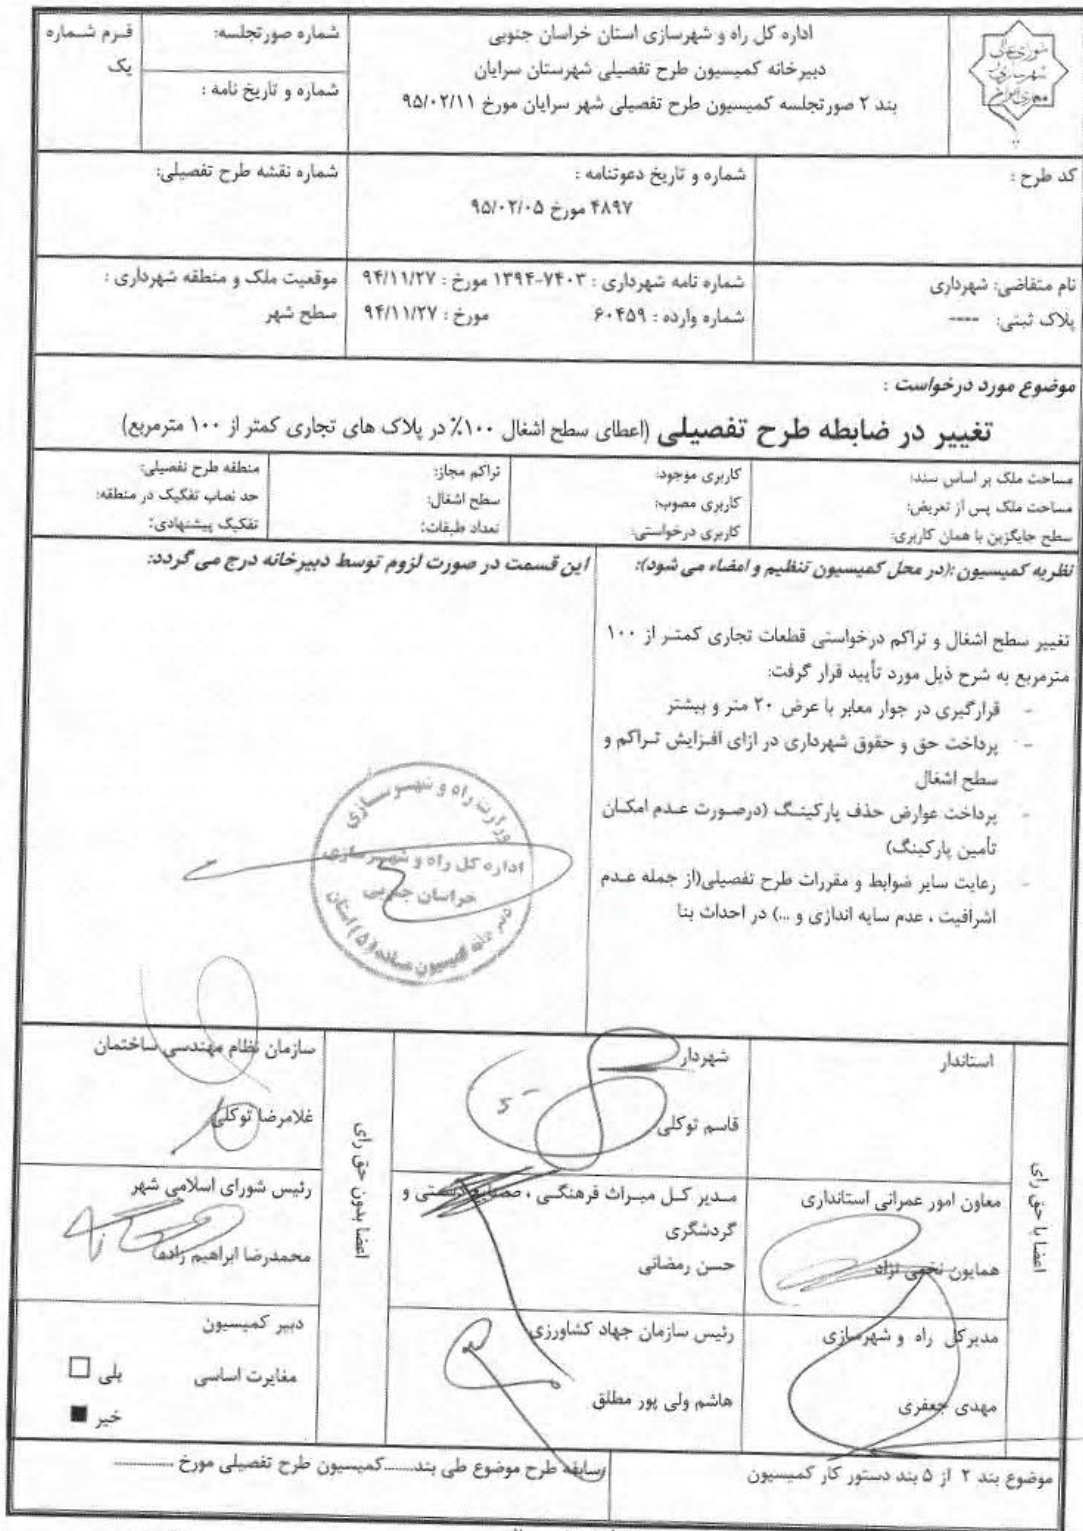 شورای عالی
شهرسازی و
معماری ایران
اداره کل راه و شهرسازی استان خراسان جنوبی
دبیرخانه کمیسیون طرح تفصیلی شهرستان سرایان
بند ۲ صورتجلسه کمیسیون طرح تفصیلی شهر سرایان مورخ ۹۵/۰۲/۱۱
شماره صورتجلسه:
شماره و تاریخ نامه :
فرم شماره
یک
کد طرح :
شماره و تاریخ دعوتنامه :
۴۸۹۷ مورخ ۹۵/۰۲/۰۵
شماره نقشه طرح تفصیلی:
نام متقاضی: شهرداری
پلاک ثبتی: ----
شماره نامه شهرداری : ۷۴۰۳-۱۳۹۴ مورخ : ۹۴/۱۱/۲۷
شماره وارده : ۶۰۴۵۹ مورخ : ۹۴/۱۱/۲۷
موقعیت ملک و منطقه شهرداری :
سطح شهر
موضوع مورد درخواست :
تغییر در ضابطه طرح تفصیلی (اعطای سطح اشغال ۱۰۰٪ در پلاک های تجاری کمتر از ۱۰۰ مترمربع)
مساحت ملک بر اساس سند:
مساحت ملک پس از تعریض:
سطح جایگزین با همان کاربری:
کاربری موجود:
کاربری مصوب:
کاربری درخواستی:
تراکم مجاز:
سطح اشغال:
تعداد طبقات:
منطقه طرح تفصیلی:
حد نصاب تفکیک در منطقه:
تفکیک پیشنهادی:
نظریه کمیسیون :(در محل کمیسیون تنظیم و امضاء می شود):
تغییر سطح اشغال و تراکم درخواستی قطعات تجاری کمتر از ۱۰۰
مترمربع به شرح ذیل مورد تأیید قرار گرفت:
- قرارگیری در جوار معابر با عرض ۲۰ متر و بیشتر
- پرداخت حق و حقوق شهرداری در ازای افزایش تراکم و
سطح اشغال
- پرداخت عوارض حذف پارکینگ (درصورت عدم امکان
تأمین پارکینگ)
- رعایت سایر ضوابط و مقررات طرح تفصیلی(از جمله عدم
اشرافیت ، عدم سایه اندازی و ...) در احداث بنا
این قسمت در صورت لزوم توسط دبیرخانه درج می گردد:
وزارت راه و شهرسازی
اداره کل راه و شهرسازی
خراسان جنوبی
دبیرخانه کمیسیون ماده (۵) استان
اعضا با حق رای
استاندار
معاون امور عمرانی استانداری
همایون نخعی نژاد
مدیرکل راه و شهرسازی
مهدی جعفری
شهردار
قاسم توکلی
مدیر کل میراث فرهنگی ، صنایع دستی و
گردشگری
حسن رمضانی
رئیس سازمان جهاد کشاورزی
هاشم ولی پور مطلق
اعضا بدون حق رای
سازمان نظام مهندسی ساختمان
غلامرضا توکلی
رئیس شورای اسلامی شهر
محمدرضا ابراهیم زاده
دبیر کمیسیون
مغایرت اساسی بلی □
خیر ■
موضوع بند ۲ از ۵ بند دستور کار کمیسیون
سابقه طرح موضوع طی بند.......کمیسیون طرح تفصیلی مورخ ..............